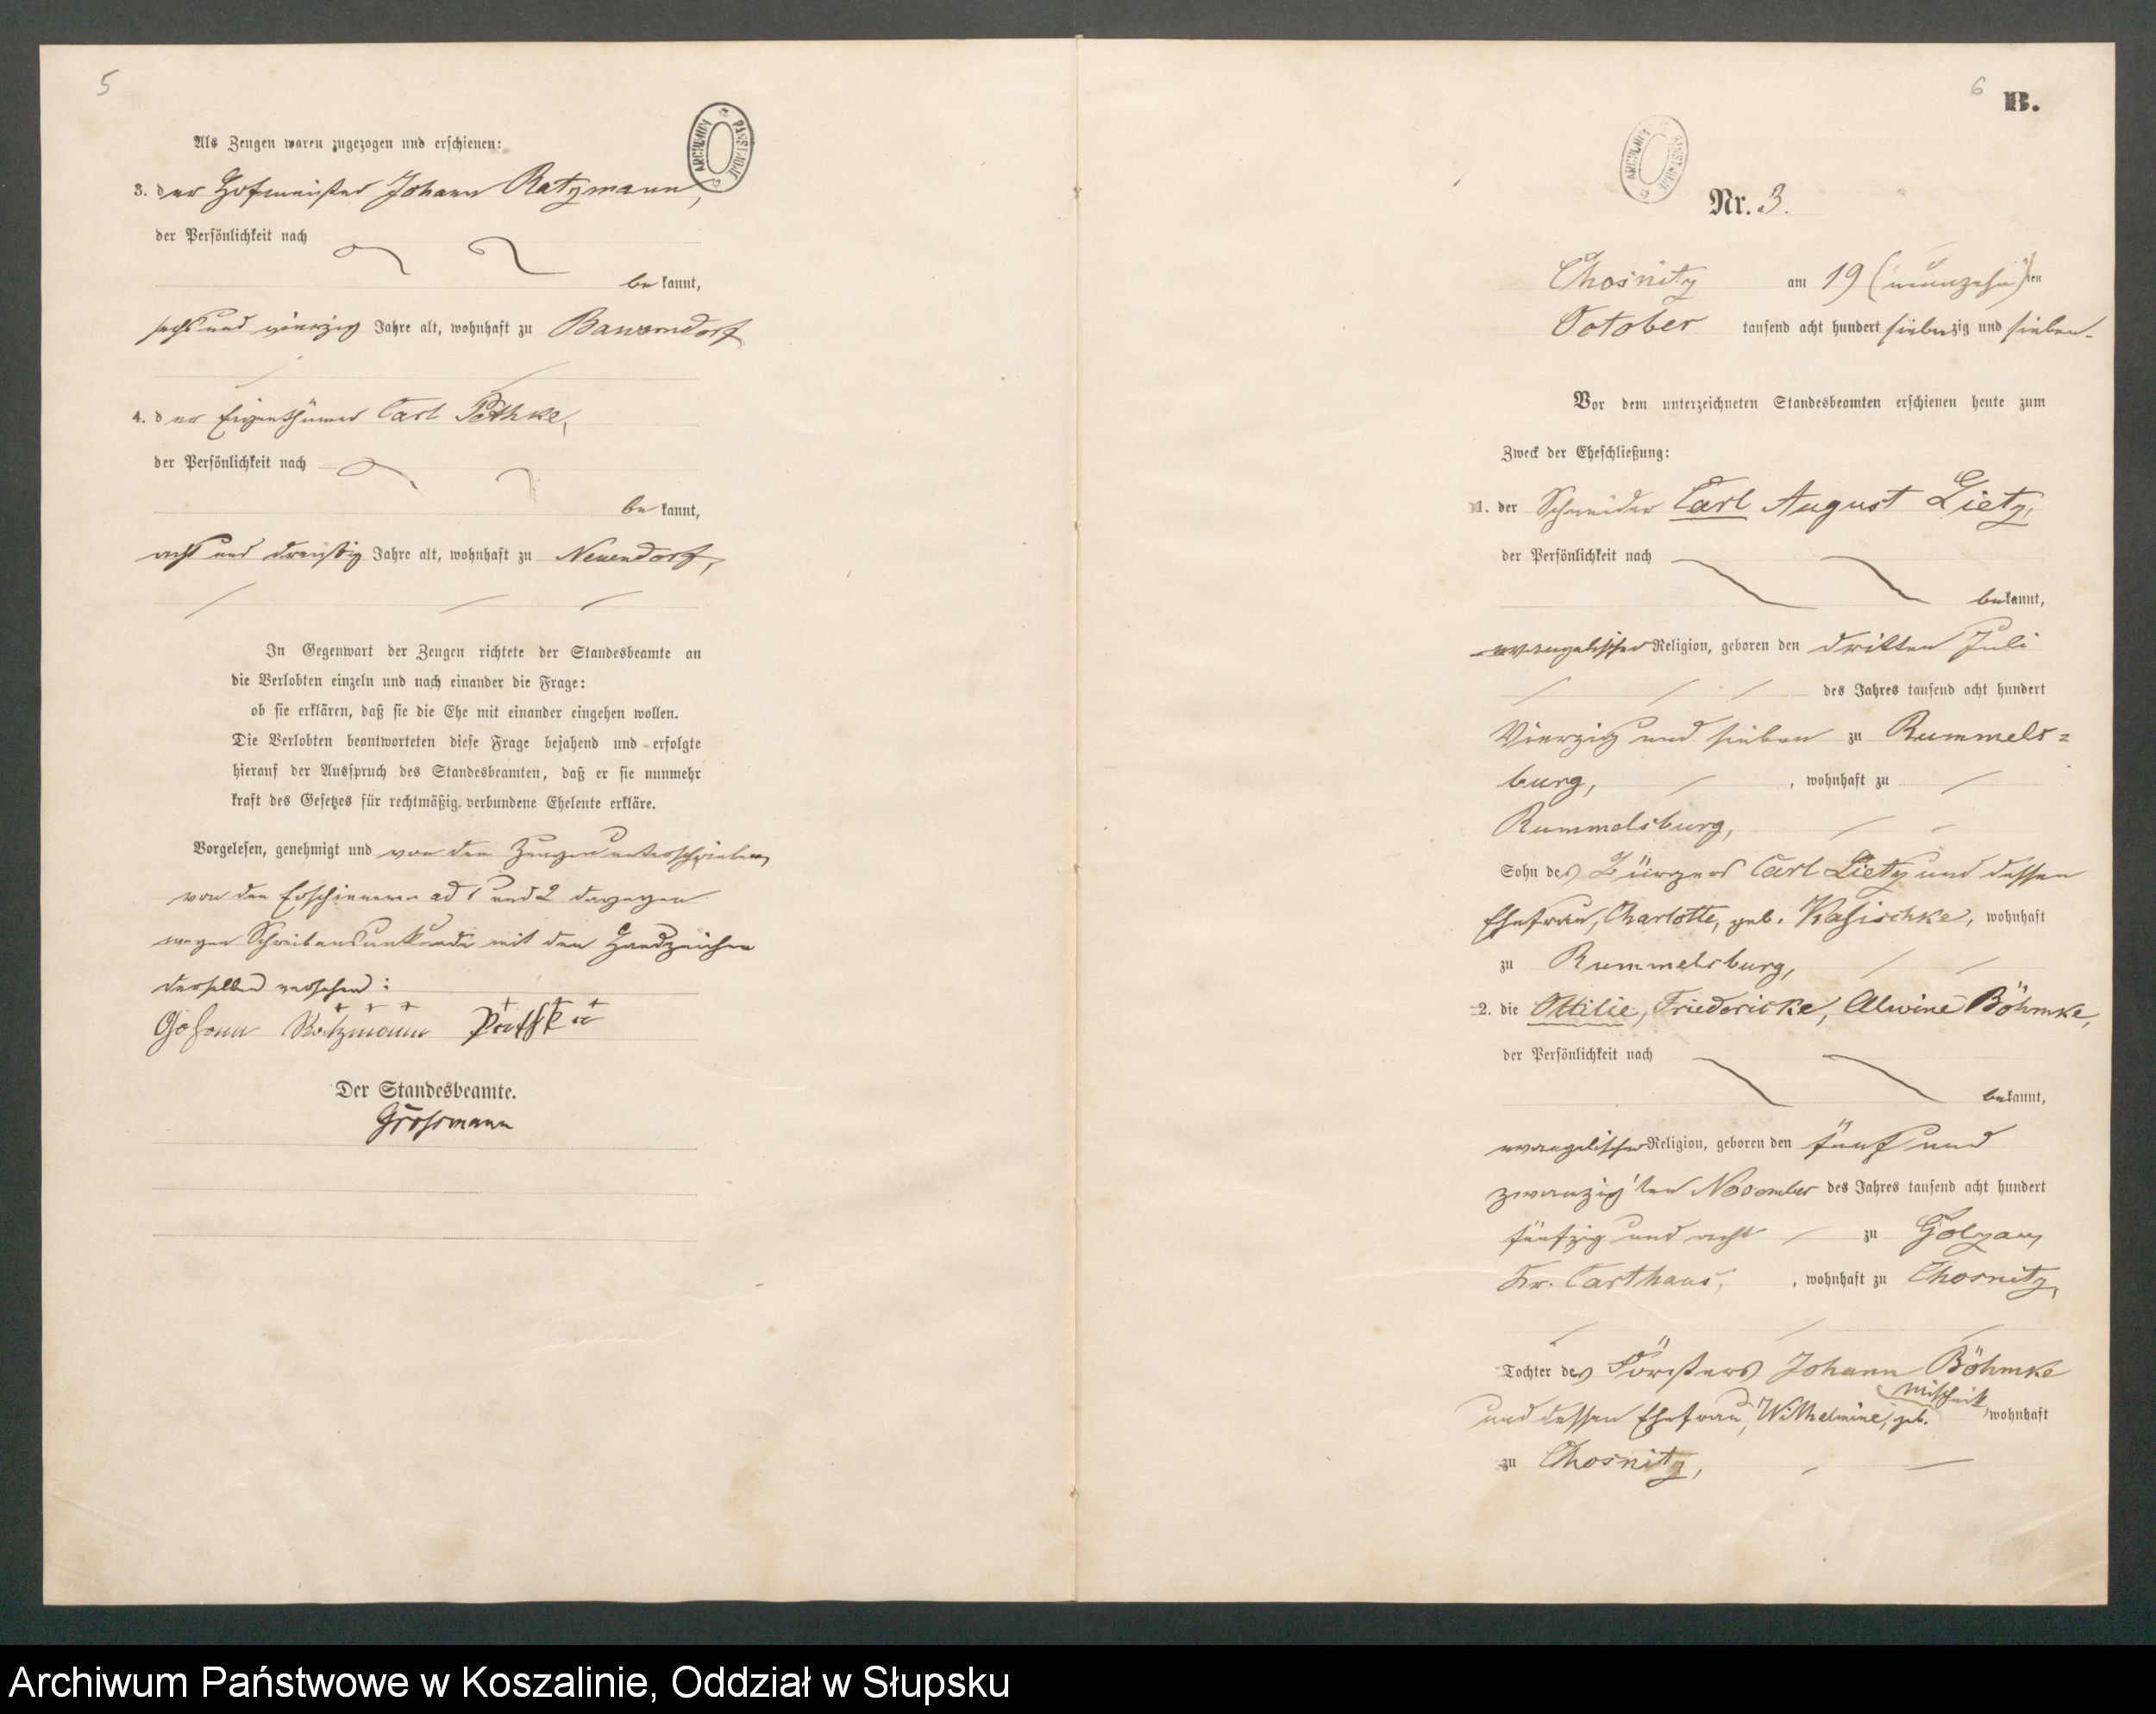 5
Als Zeugen waren zugezogen und erschienen:
ARCHIWUM PAŃSTWOWE
3. der Hofmeister Johann Ratzmann,
der Persönlichkeit nach
be kannt,
sechs und vierzig Jahre alt, wohnhaft zu Bawerndorf
4. der Eigenthümer Carl Pethke,
der Persönlichkeit nach
be kannt,
acht und dreißig Jahre alt, wohnhaft zu Neuendorf,
In Gegenwart der Zeugen richtete der Standesbeamte an
die Verlobten einzeln und nach einander die Frage:
ob sie erklären, daß sie die Ehe mit einander eingehen wollen.
Die Verlobten beantworteten diese Frage bejahend und erfolgte
hierauf der Ausspruch des Standesbeamten, daß er sie nunmehr
kraft des Gesetzes für rechtmäßig verbundene Eheleute erkläre.
Vorgelesen, genehmigt und von den Zeugen unterschrieben,
von den Erschienenen ad 1 und 2 dagegen
wegen Schreibensunkunde mit den Handzeichen
derselben versehen:
+ + + + + +
Johann Ratzmann
Der Standesbeamte.
Grossmann
6
B.
ARCHIWUM PAŃSTWOWE
Nr. 3.
Chosnitz am 19 (neunzehn)ten
October tausend acht hundert siebenzig und sieben
Vor dem unterzeichneten Standesbeamten erschienen heute zum
Zweck der Eheschließung:
1. der Schneider Carl August Lietz,
der Persönlichkeit nach
bekannt,
evangelischer Religion, geboren den dritten Juli
des Jahres tausend acht hundert
Vierzig und sieben zu Rummels=
burg, , wohnhaft zu
Rummelsburg,
Sohn des Bürgers Carl Lietz und dessen
Ehefrau, Charlotte, geb. Kasischke, wohnhaft
zu Rummelsburg,
2. die Ottilie, Friedericke, Alwine Böhmke,
der Persönlichkeit nach
bekannt,
evangelischer Religion, geboren den fünf und
zwanzigsten November des Jahres tausend acht hundert
fünfzig und acht zu Golzau,
Kr. Carthaus, , wohnhaft zu Chosnitz,
Tochter des Försters Johann Böhmke
und dessen Ehefrau, Wilhelmine, geb. Mischnik, wohnhaft
zu Chosnitz,
Archiwum Państwowe w Koszalinie, Oddział w Słupsku